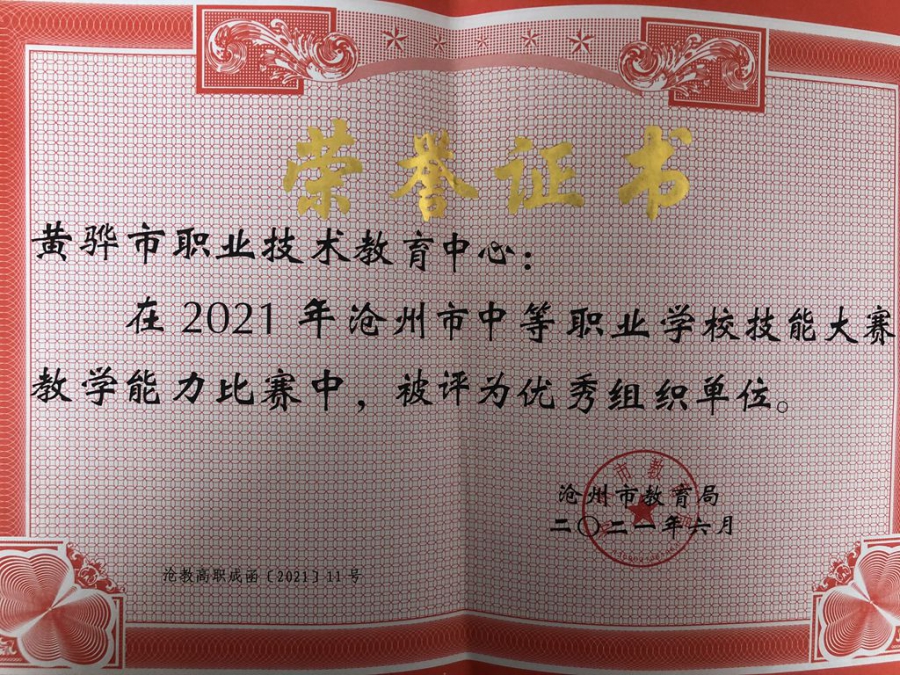 荣誉证书
黄骅市职业技术教育中心：
在2021年沧州市中等职业学校技能大赛
教学能力比赛中，被评为优秀组织单位。
沧州市教育局
二〇二一年六月
沧教高职成函〔2021〕11号